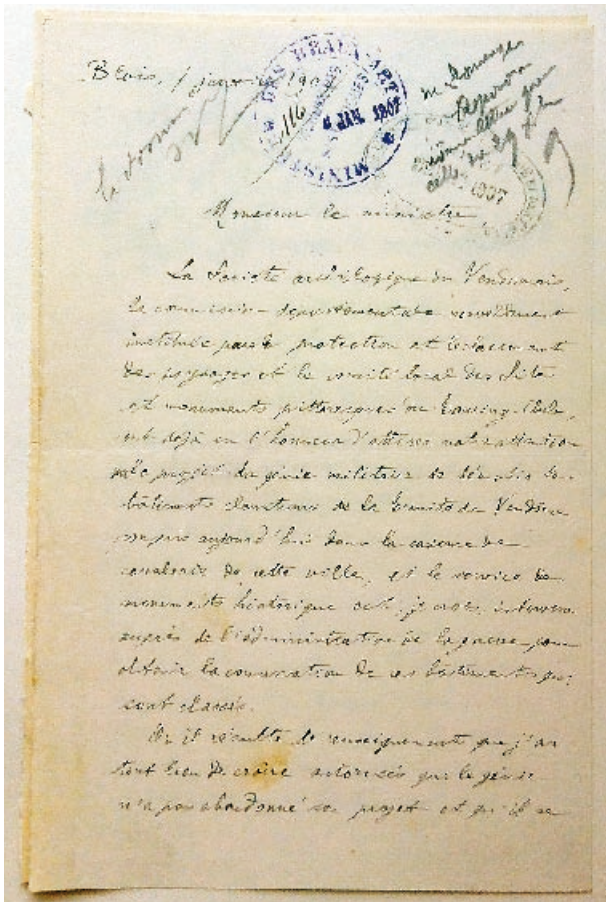 Blois, 1 janvier 190
MINISTÈRE DES BEAUX-ARTS
116
6 JAN. 1907
1907
Monsieur le ministre
La Société archéologique du Vendomois,
la commission départementale
instituée pour la protection et
des paysages et le comité local des Sites
et monuments pittoresques du Touring-Club,
ont déjà eu l'honneur d'attirer votre attention
le projet du génie militaire de
bâtiments de la Trinité de Vendôme
aujourd'hui dans la caserne de
cavalerie de cette ville, et le service des
monuments historiques est, je crois, intervenu
auprès de l'administration de la guerre pour
obtenir la conservation de ces bâtiments qui
sont classés.
Or il résulte de renseignements que j'ai
tout lieu de croire autorisés que le génie
n'a pas abandonné son projet et qu'il se